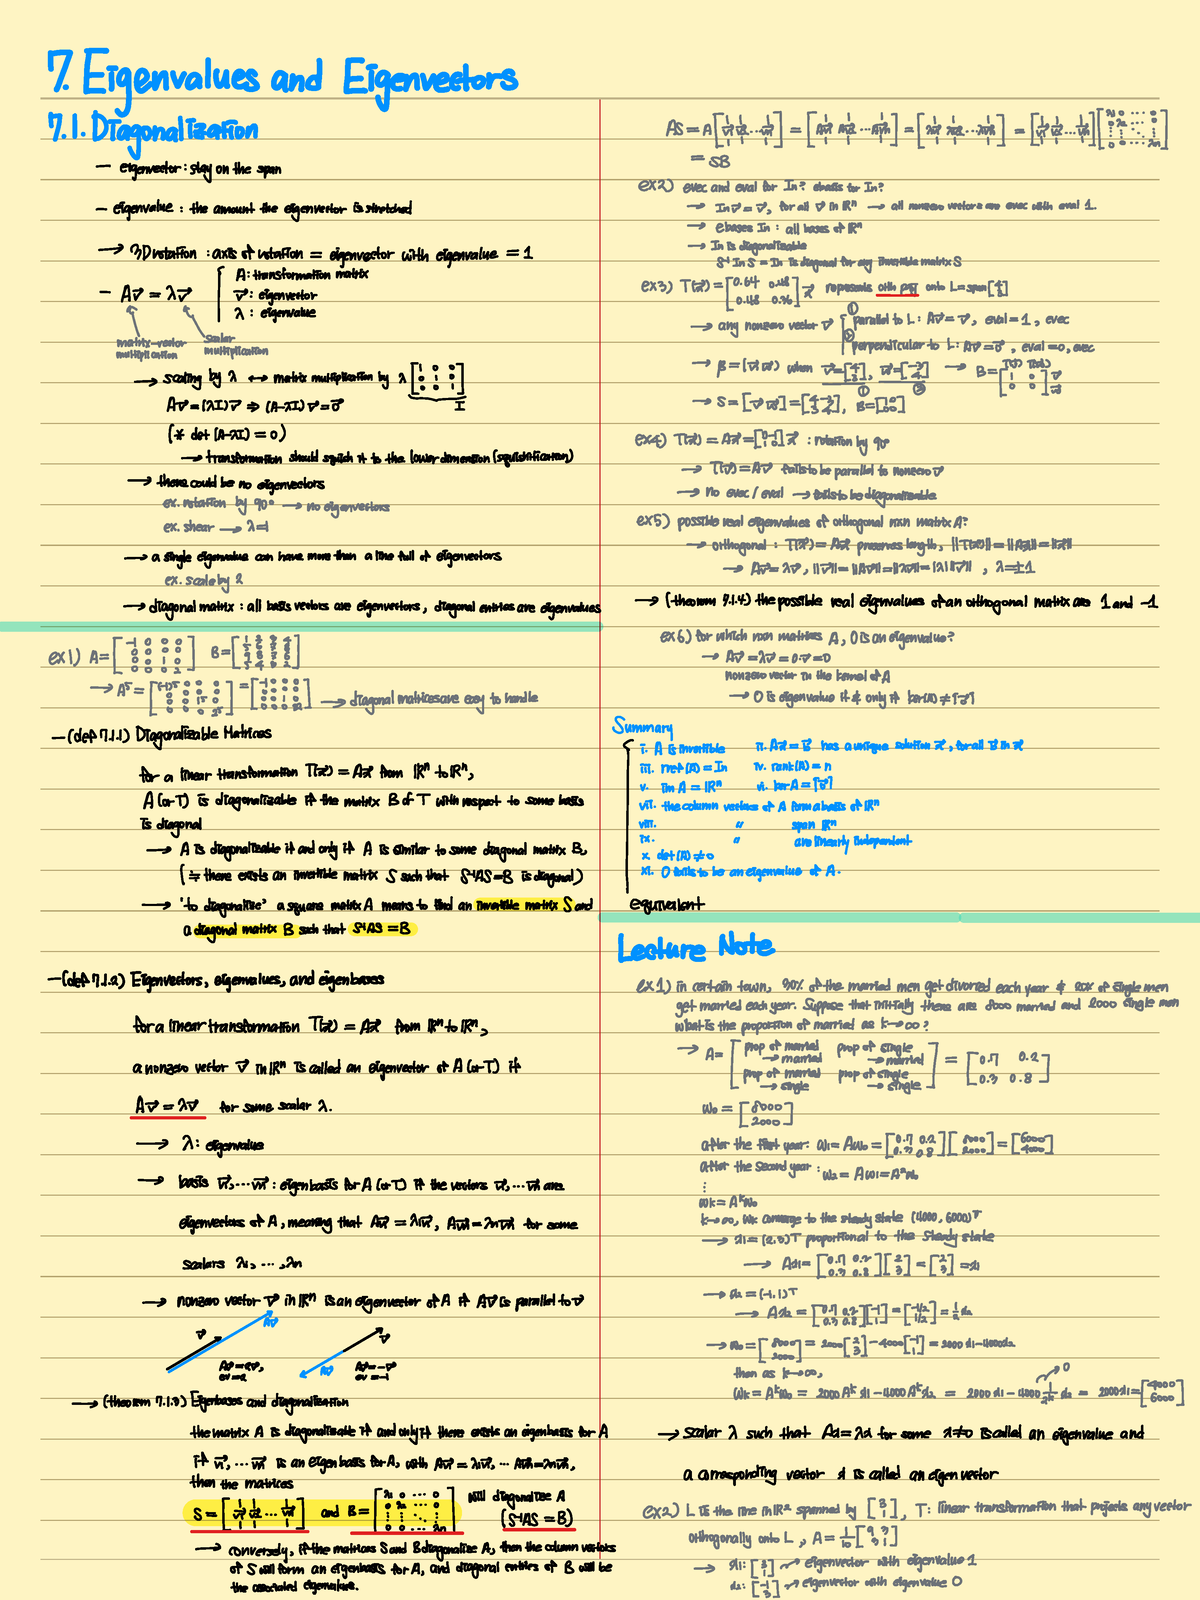 7. Eigenvalues and Eigenvectors
7.1. Diagonalization
— eigenvector : stay on the span
— eigenvalue : the amount the eigenvector is stretched
→ 3D rotation : axis of rotation = eigenvector with eigenvalue = 1
— Av⃗ = λv⃗
A : transformation matrix
v⃗ : eigenvector
λ : eigenvalue
matrix-vector multiplication
scalar multiplication
→ scaling by λ ↔ matrix multiplication by λ [1 0 0; 0 1 0; 0 0 1] I
Av⃗ = (λI)v⃗ ⇒ (A-λI)v⃗ = 0⃗
(* det(A-λI) = 0)
→ transformation should squish it to the lower dimension (squishification)
→ there could be no eigenvectors
ex. rotation by 90° → no eigenvectors
ex. shear → λ=1
→ a single eigenvalue can have more than a line full of eigenvectors
ex. scale by 2
→ diagonal matrix : all basis vectors are eigenvectors, diagonal entries are eigenvalues
ex1) A = [-1 0 0 0; 0 0 0 0; 0 0 1 0; 0 0 0 2] B =
→ A⁵ = [(-1)⁵ 0 0 0; 0 0 0 0; 0 0 1⁵ 0; 0 0 0 2⁵] = → diagonal matrices are easy to handle
— (def 7.1.1) Diagonalizable Matrices
for a linear transformation T(x⃗) = Ax⃗ from ℝⁿ to ℝⁿ,
A (or T) is diagonalizable if the matrix B of T with respect to some basis
is diagonal
→ A is diagonalizable if and only if A is similar to some diagonal matrix B,
(≒ there exists an invertible matrix S such that S⁻¹AS=B is diagonal)
→ 'to diagonalize' a square matrix A means to find an invertible matrix S and
a diagonal matrix B such that S⁻¹AS = B
— (def 7.1.2) Eigenvectors, eigenvalues, and eigenbases
for a linear transformation T(x⃗) = Ax⃗ from ℝⁿ to ℝⁿ,
a nonzero vector v⃗ in ℝⁿ is called an eigenvector of A (or T) if
Av⃗ = λv⃗ for some scalar λ.
→ λ : eigenvalue
→ basis v⃗1, ⋯ v⃗n : eigenbasis for A (or T) if the vectors v⃗1, ⋯ v⃗n are
eigenvectors of A, meaning that Av⃗1 = λ1v⃗1, Av⃗n = λnv⃗n for some
scalars λ1, ⋯, λn
→ nonzero vector v⃗ in ℝⁿ is an eigenvector of A if Av⃗ is parallel to v⃗
v⃗ Av⃗ Av⃗=2v⃗, ev=2
v⃗ Av⃗ Av⃗=-v⃗ ev=-1
→ (theorem 7.1.3) Eigenbases and diagonalization
the matrix A is diagonalizable if and only if there exists an eigenbasis for A
if v⃗1, ⋯ v⃗n is an eigenbasis for A, with Av⃗1 = λ1v⃗1, ⋯ Av⃗n=λnv⃗n,
then the matrices
S = [v⃗1 v⃗2 ⋯ v⃗n] and B = [λ1 0 ⋯ 0; 0 λ2 ⋯ 0; ⋮ ⋮ ⋱ ⋮; 0 0 ⋯ λn] will diagonalize A (S⁻¹AS = B)
→ conversely, if the matrices S and B diagonalize A, then the column vectors
of S will form an eigenbasis for A, and diagonal entries of B will be
the associated eigenvalues.
AS = A [v⃗1 v⃗2 ⋯ v⃗n] = [Av⃗1 Av⃗2 ⋯ Av⃗n] = [λv⃗1 λv⃗2 ⋯ λv⃗n] = [v⃗1 v⃗2 ⋯ v⃗n] [λ1 0 ⋯ 0; 0 λ2 ⋯ 0; ⋮ ⋮ ⋱ ⋮; 0 0 ⋯ λn]
= SB
ex2) evec and eval for In? ebasis for In?
→ Inv⃗ = v⃗, for all v⃗ in ℝⁿ → all nonzero vectors are evec with eval 1.
→ ebases In : all bases of ℝⁿ
→ In is diagonalizable
S⁻¹ In S = In is diagonal for any invertible matrix S
ex3) T(x⃗) = [0.64 0.48; 0.48 0.36] x⃗ represents orth proj onto L=span [4; 3]
→ any nonzero vector v⃗ ① parallel to L : Av⃗ = v⃗, eval = 1, evec
② perpendicular to L : Av⃗ = 0⃗, eval=0, evec
→ β = (v⃗ w⃗) when v⃗=[4; 3] ①, w⃗=[-3; 4] ② → B = T(v⃗) T(w⃗) [1 0; 0 0] v⃗ w⃗
→ S = [v⃗ w⃗] = [4 -3; 3 4], B = [1 0; 0 0]
ex4) T(x⃗) = Ax⃗ = [0 -1; 1 0] x⃗ : rotation by 90°
→ T(v⃗) = Av⃗ fails to be parallel to nonzero v⃗
→ no evec / eval → fails to be diagonalizable
ex5) possible real eigenvalues of orthogonal nxn matrix A?
→ orthogonal : T(x⃗) = Ax⃗ preserves length, ||T(x⃗)|| = ||Ax⃗|| = ||x⃗||
→ Av⃗ = λv⃗, ||v⃗|| = ||Av⃗|| = ||λv⃗|| = |λ| ||v⃗||, λ=±1
→ (theorem 7.1.4) the possible real eigenvalues of an orthogonal matrix are 1 and -1
ex6) for which nxn matrices A, 0 is an eigenvalue?
→ Av⃗ = λv⃗ = 0·v⃗ = 0
nonzero vector in the kernel of A
→ 0 is eigenvalue if & only if ker(A) ≠ {0⃗}
Summary
i. A is invertible ii. Ax⃗ = b⃗ has a unique solution x⃗, for all b⃗ in x⃗
iii. rref(A) = In iv. rank(A) = n
v. im A = ℝⁿ vi. ker A = {0⃗}
vii. the column vectors of A form a basis of ℝⁿ
viii. 〃 span ℝⁿ
ix. 〃 are linearly independent
x. det(A) ≠ 0
xi. 0 fails to be an eigenvalue of A.
equivalent
Lecture Note
ex1) in certain town, 30% of the married men get divorced each year & 20% of single men
get married each year. Suppose that initially there are 8000 married and 2000 single men
what is the proportion of married as k→∞?
→ A = [prop of married → married prop of single → married; prop of married → single prop of single → single] = [0.7 0.2; 0.3 0.8]
w0 = [8000; 2000]
after the first year : w1 = Aw0 = [0.7 0.2; 0.3 0.8] [8000; 2000] = [6000; 4000]
after the second year : w2 = Aw1 = A²w0
⋮
wk = Aᵏw0
k→∞, wk converge to the steady state (4000, 6000)ᵀ
→ x1 = (2,3)ᵀ proportional to the steady state
→ Ax1 = [0.7 0.2; 0.3 0.8] [2; 3] = [2; 3] = x1
→ x2 = (-1, 1)ᵀ
→ Ax2 = [0.7 0.2; 0.3 0.8] [-1; 1] = [-1/2; 1/2] = ½ x2
→ w0 = [8000; 2000] = 2000 [2; 3] - 4000 [-1; 1] = 2000 x1 - 4000 x2
then as k→∞,
wk = Aᵏw0 = 2000 Aᵏ x1 - 4000 Aᵏ x2 = 2000 x1 - 4000 1/2ᵏ x2 = 2000 x1 = [4000; 6000]
0
→ scalar λ such that Ax = λx for some x≠0 is called an eigenvalue and
a corresponding vector x is called an eigen vector
ex2) L is the line in ℝ² spanned by [3; 1], T : linear transformation that projects any vector
orthogonally onto L, A = 1/10 [9 3; 3 1]
→ x1 : [3; 1] → eigenvector with eigenvalue 1
x2 : [-1; 3] → eigenvector with eigenvalue 0